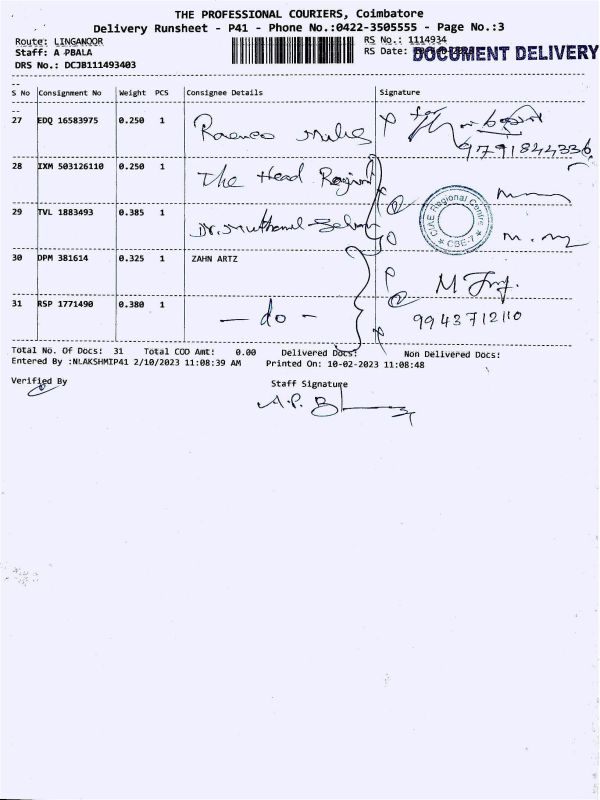 THE PROFESSIONAL COURIERS, Coimbatore
Delivery Runsheet - P41 - Phone No.:0422-3505555 - Page No.:3
Route: LINGANOOR
Staff: A PBALA
DRS No.: DCJB111493403
RS No.: 1114934
RS Date:
DOCUMENT DELIVERY
S No Consignment No Weight PCS Consignee Details Signature
27 EDQ 16583975 0.250 1
9791844336
28 IXM 503126110 0.250 1 The Head Regional
CIAE Regional Centre
★ CBE-7 ★
29 TVL 1883493 0.385 1 Dr. Muthamil Selvan
30 DPM 381614 0.325 1 ZAHN ARTZ
31 RSP 1771490 0.380 1 — do —
9943712110
Total No. Of Docs: 31 Total COD Amt: 0.00 Delivered Docs: Non Delivered Docs:
Entered By :NLAKSHMIP41 2/10/2023 11:08:39 AM Printed On: 10-02-2023 11:08:48
Verified By Staff Signature
A.P. B